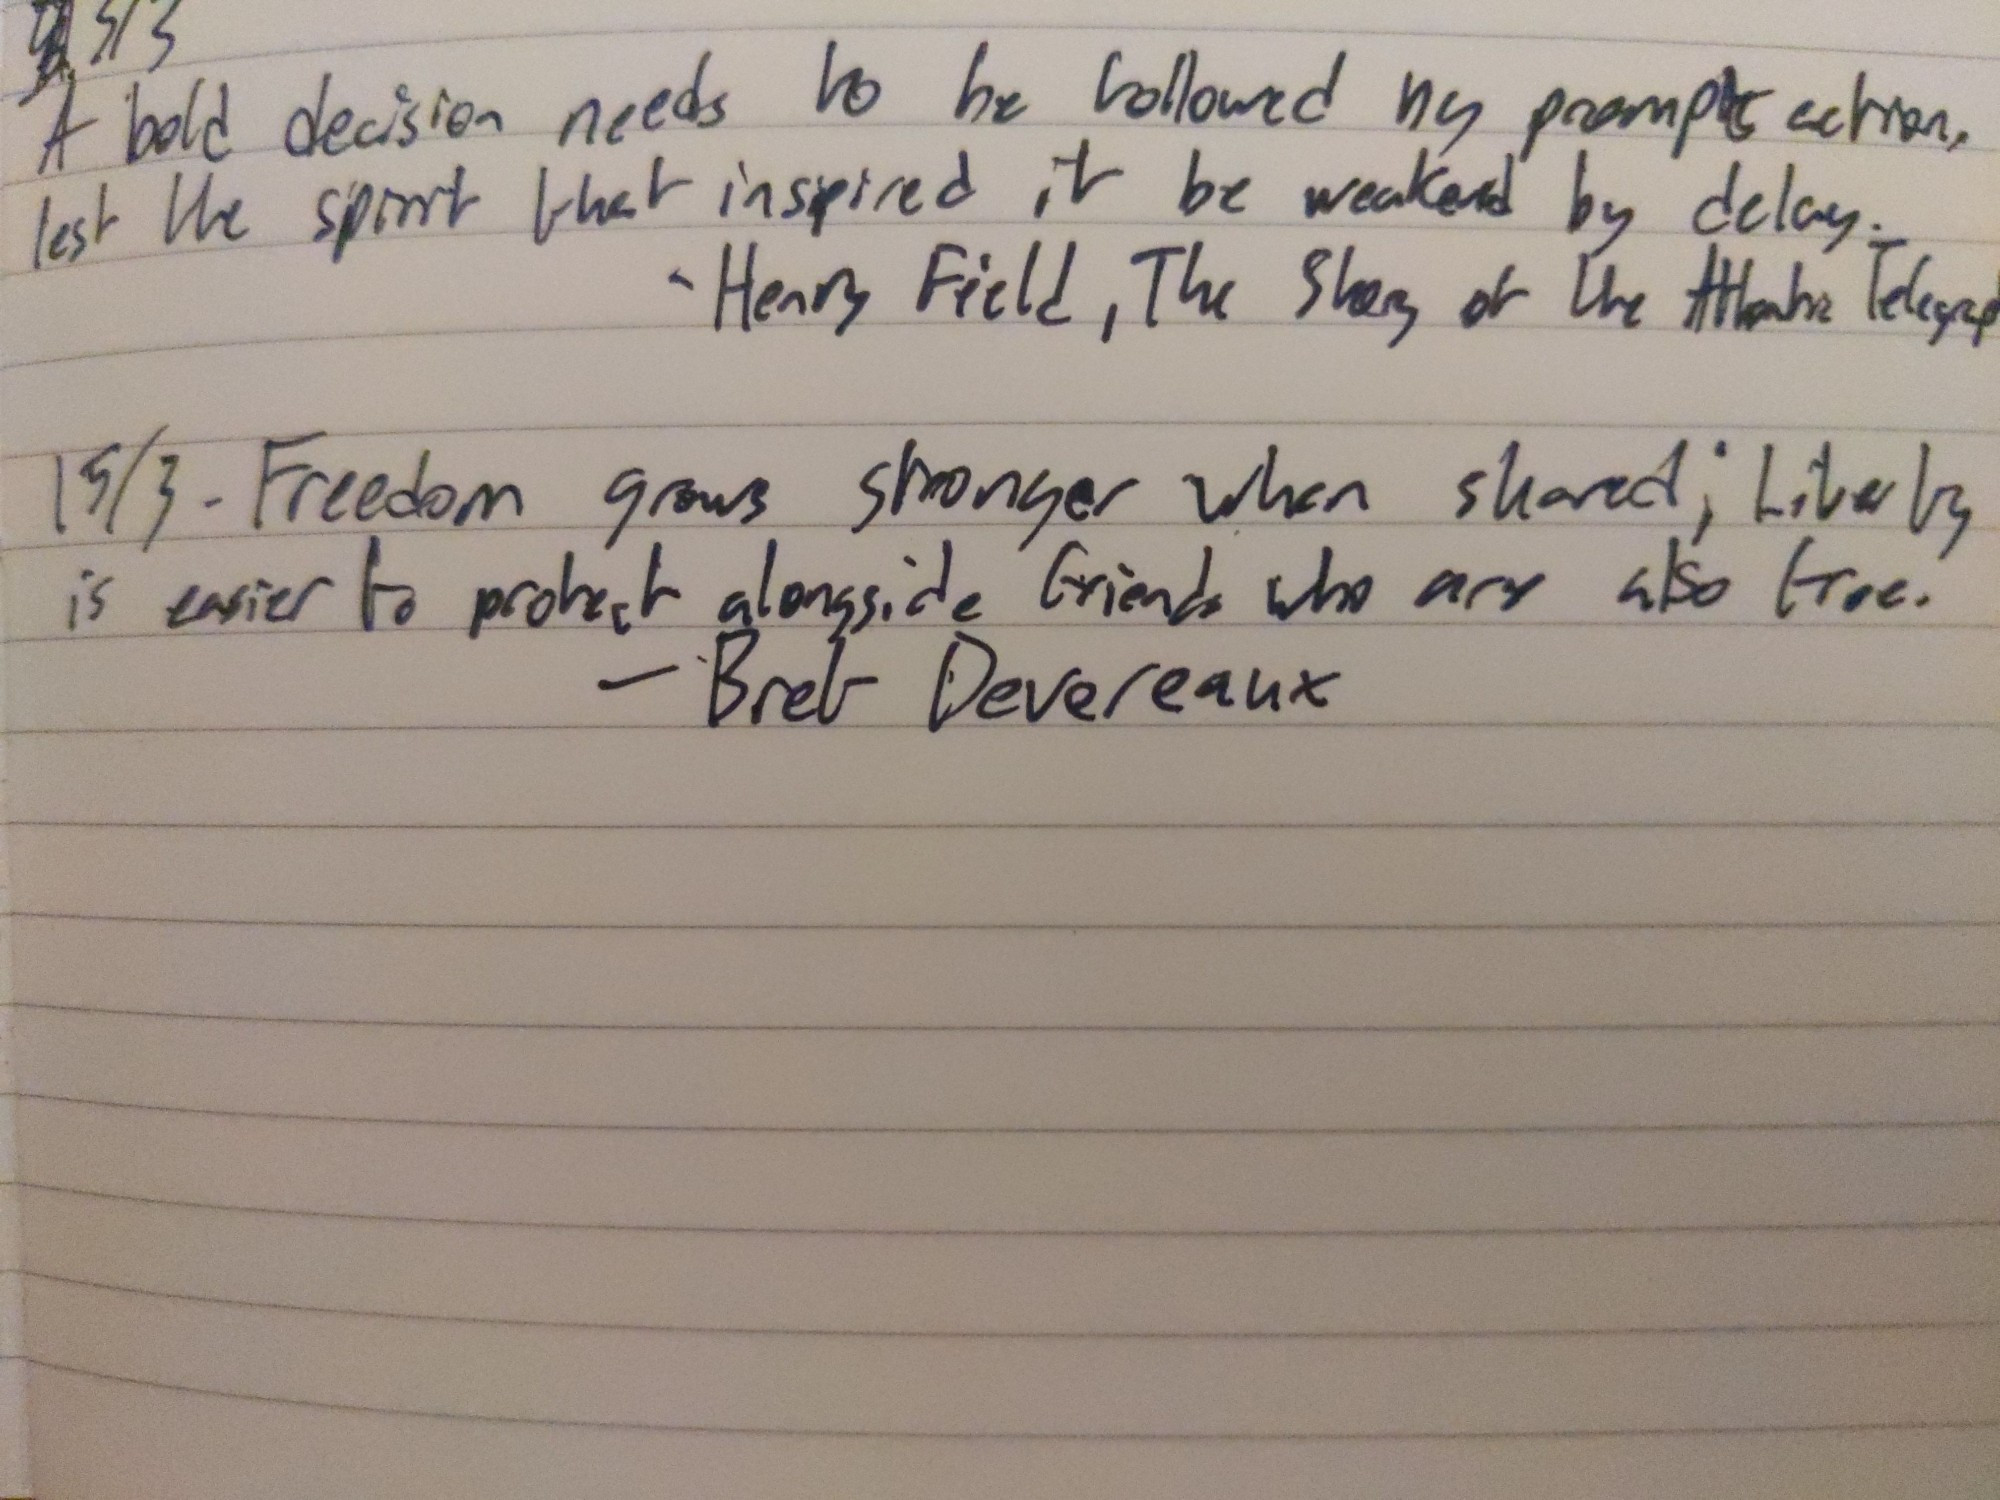 5/3
A bold decision needs to be followed by prompt action,
lest the spirit that inspired it be weakend by delay.
- Henry Field, The Story of the Atlantic Telegrap
15/3 - Freedom grows stronger when shared; Liberty
is easier to protect alongside friends who are also free.
- Bret Devereaux